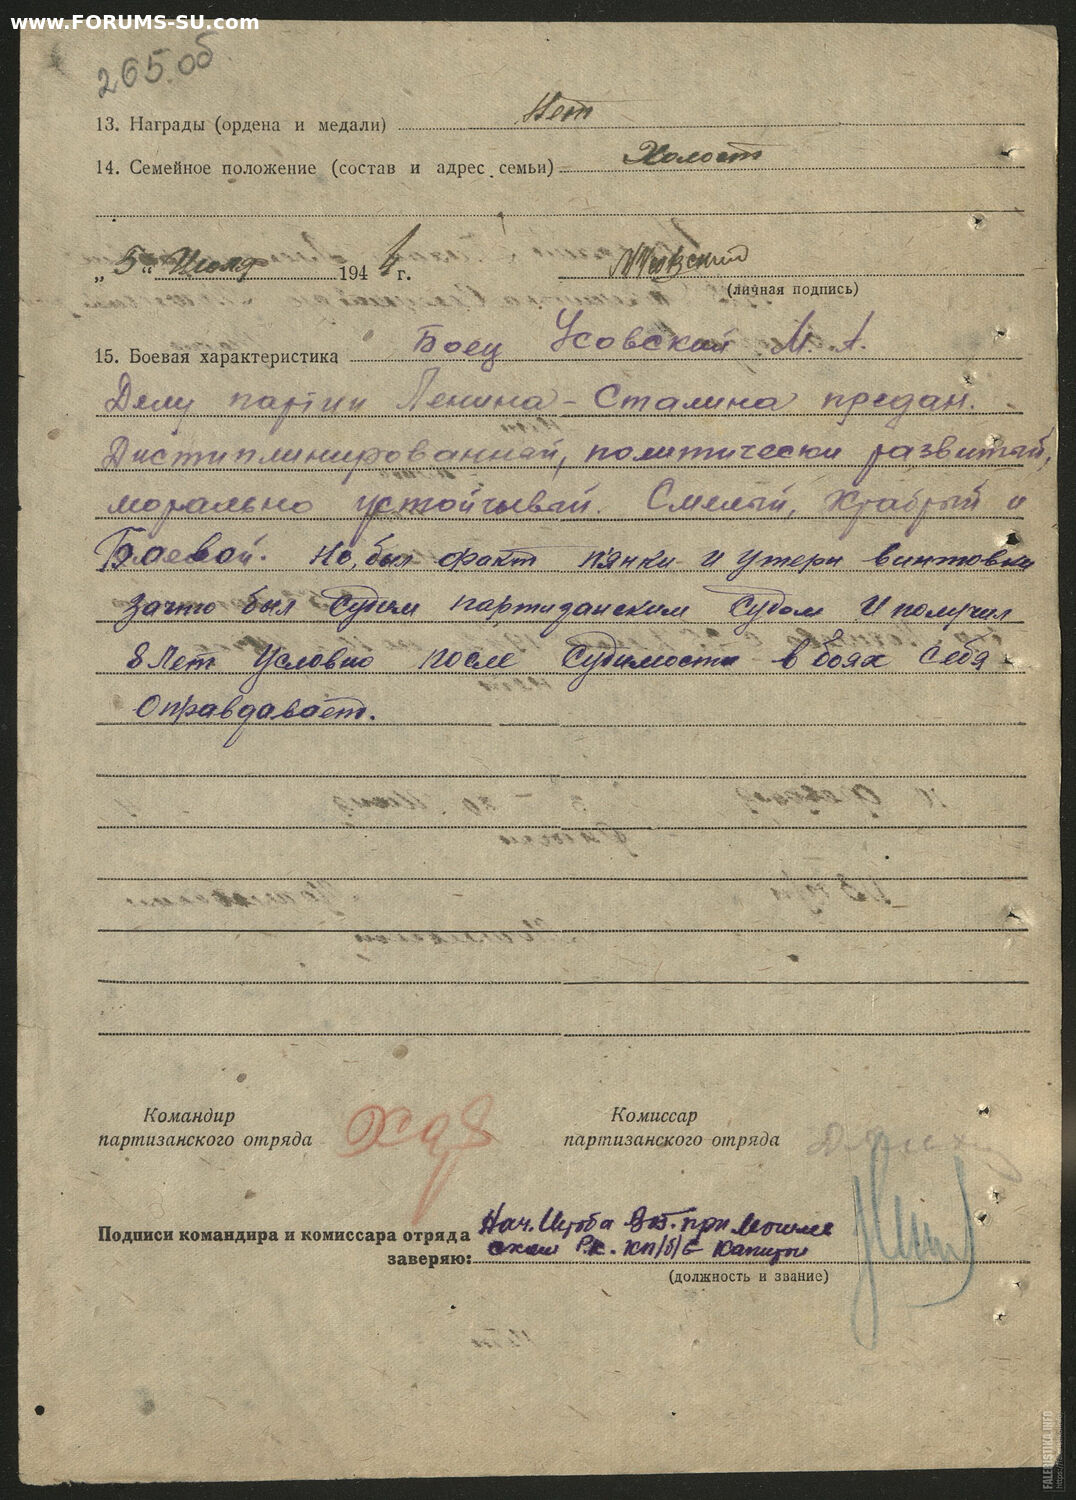 www.FORUMS-SU.com
265.об
13. Награды (ордена и медали) Нет
14. Семейное положение (состав и адрес семьи) Холост
„5“ Июля 1944 г.
(личная подпись)
15. Боевая характеристика Боец Усовский М. А.
Делу партии Ленина - Сталина предан.
Дистиплинированный, политически развитый,
морально устойчывый. Смелый, храбрый и
Боевой. Но, был факт пянки и утери винтовки
зачто был судим партизанским судом и получил
8 лет условно после судимости в боях себя
оправдавает.
Командир
партизанского отряда
Комиссар
партизанского отряда
Подписи командира и комиссара отряда
заверяю:
Нач. Штоба при
РК. КП/б/Б
(должность и звание)
FALERISTIKA.INFO